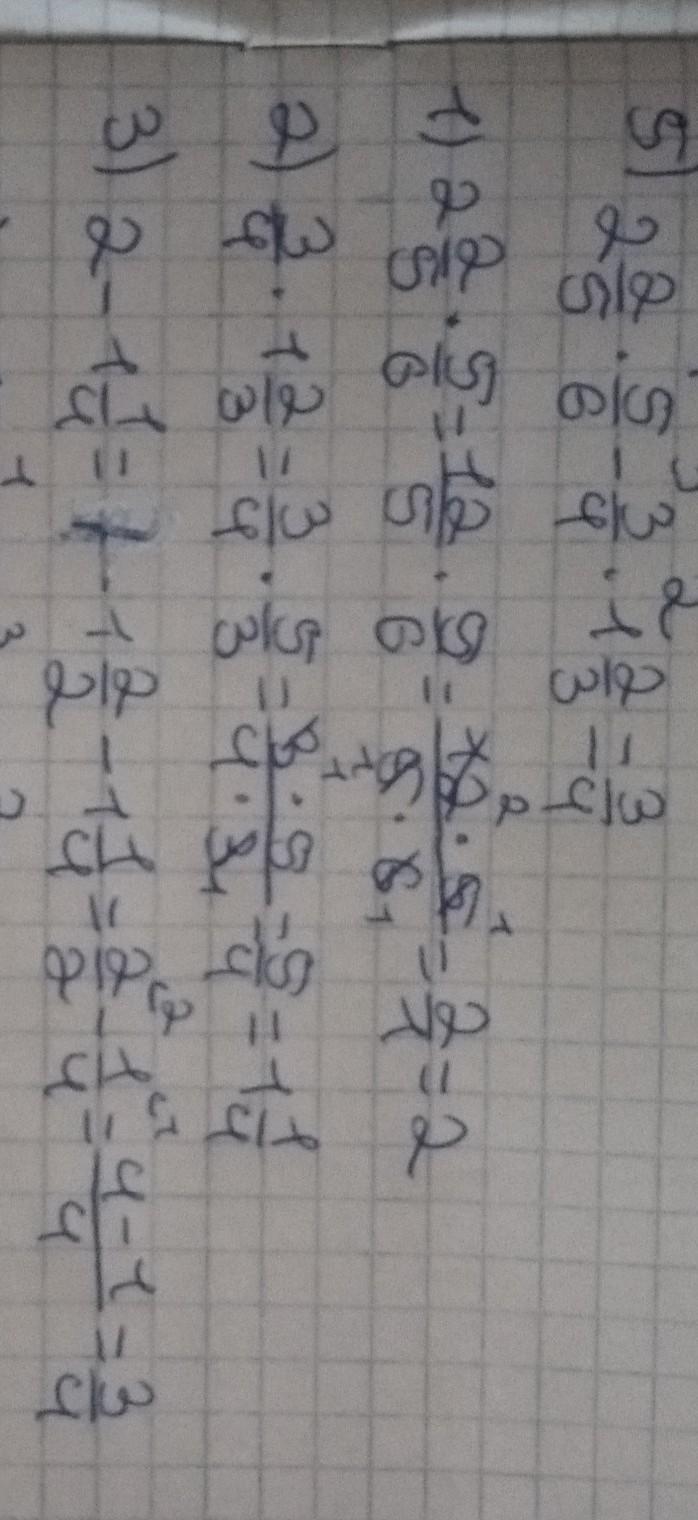 5) 2 2/5 · 5/6 - 3/4 · 1 2/3 = 3/4
1) 2 2/5 · 5/6 = 12/5 · 5/6 = 12 2 · 5 1 / 5 1 · 6 1 = 2/1 = 2
2) 3/4 · 1 2/3 = 3/4 · 5/3 = 3 1 · 5 / 4 · 3 1 = 5/4 = 1 1/4
3) 2 - 1 1/4 = 1 2/2 - 1 1/4 = 2/2 - 1/4 = 4-1/4 = 3/4